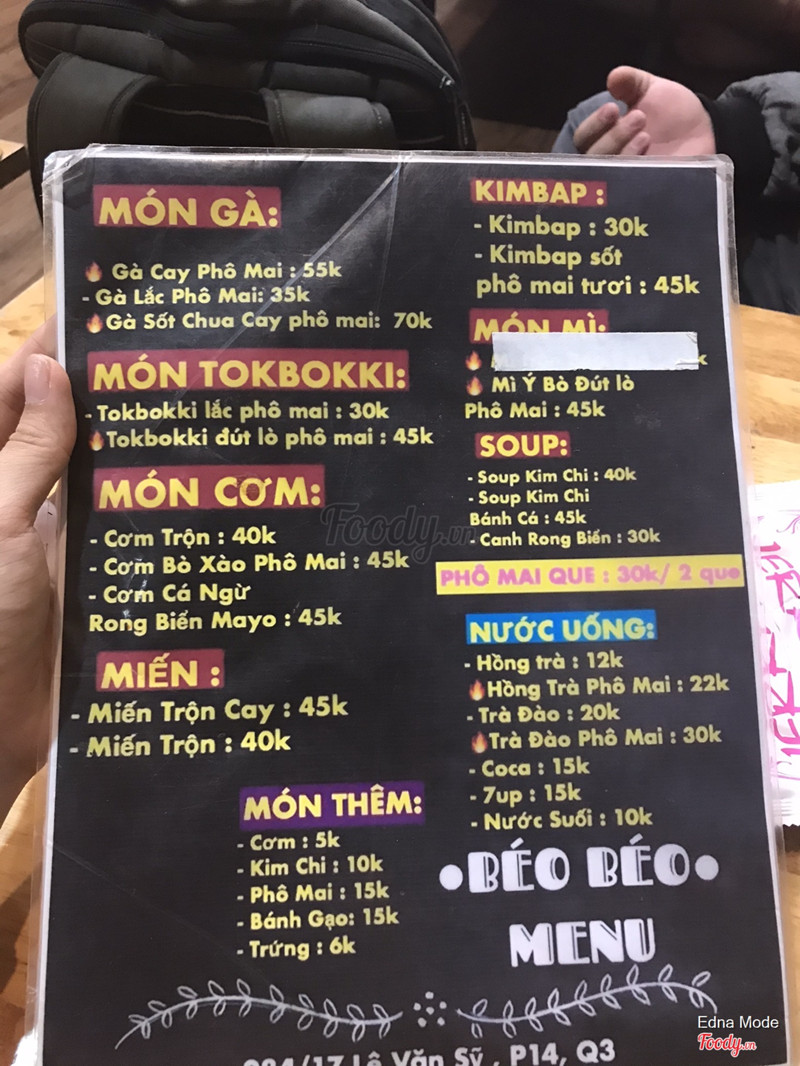 MÓN GÀ:
🔥 Gà Cay Phô Mai : 55k
- Gà Lắc Phô Mai: 35k
🔥Gà Sốt Chua Cay phô mai: 70k
MÓN TOKBOKKI:
- Tokbokki lắc phô mai : 30k
🔥Tokbokki đút lò phô mai : 45k
MÓN CƠM:
- Cơm Trộn : 40k
- Cơm Bò Xào Phô Mai : 45k
- Cơm Cá Ngừ
Rong Biển Mayo : 45k
MIẾN :
- Miến Trộn Cay : 45k
- Miến Trộn : 40k
MÓN THÊM:
- Cơm : 5k
- Kim Chi : 10k
- Phô Mai : 15k
- Bánh Gạo: 15k
- Trứng : 6k
KIMBAP :
- Kimbap : 30k
- Kimbap sốt
phô mai tươi : 45k
MÓN MÌ:
🔥 Mì Ý Bò Đút lò
Phô Mai : 45k
SOUP:
- Soup Kim Chi : 40k
- Soup Kim Chi
Bánh Cá : 45k
- Canh Rong Biển : 30k
PHÔ MAI QUE : 30k/ 2 que
NƯỚC UỐNG:
- Hồng trà : 12k
🔥Hồng Trà Phô Mai : 22k
- Trà Đào : 20k
🔥Trà Đào Phô Mai : 30k
- Coca : 15k
- 7up : 15k
- Nước Suối : 10k
•BÉO BÉO•
MENU
Lê Văn Sỹ , P14, Q3
Foody.vn
Edna Mode
Foody.vn